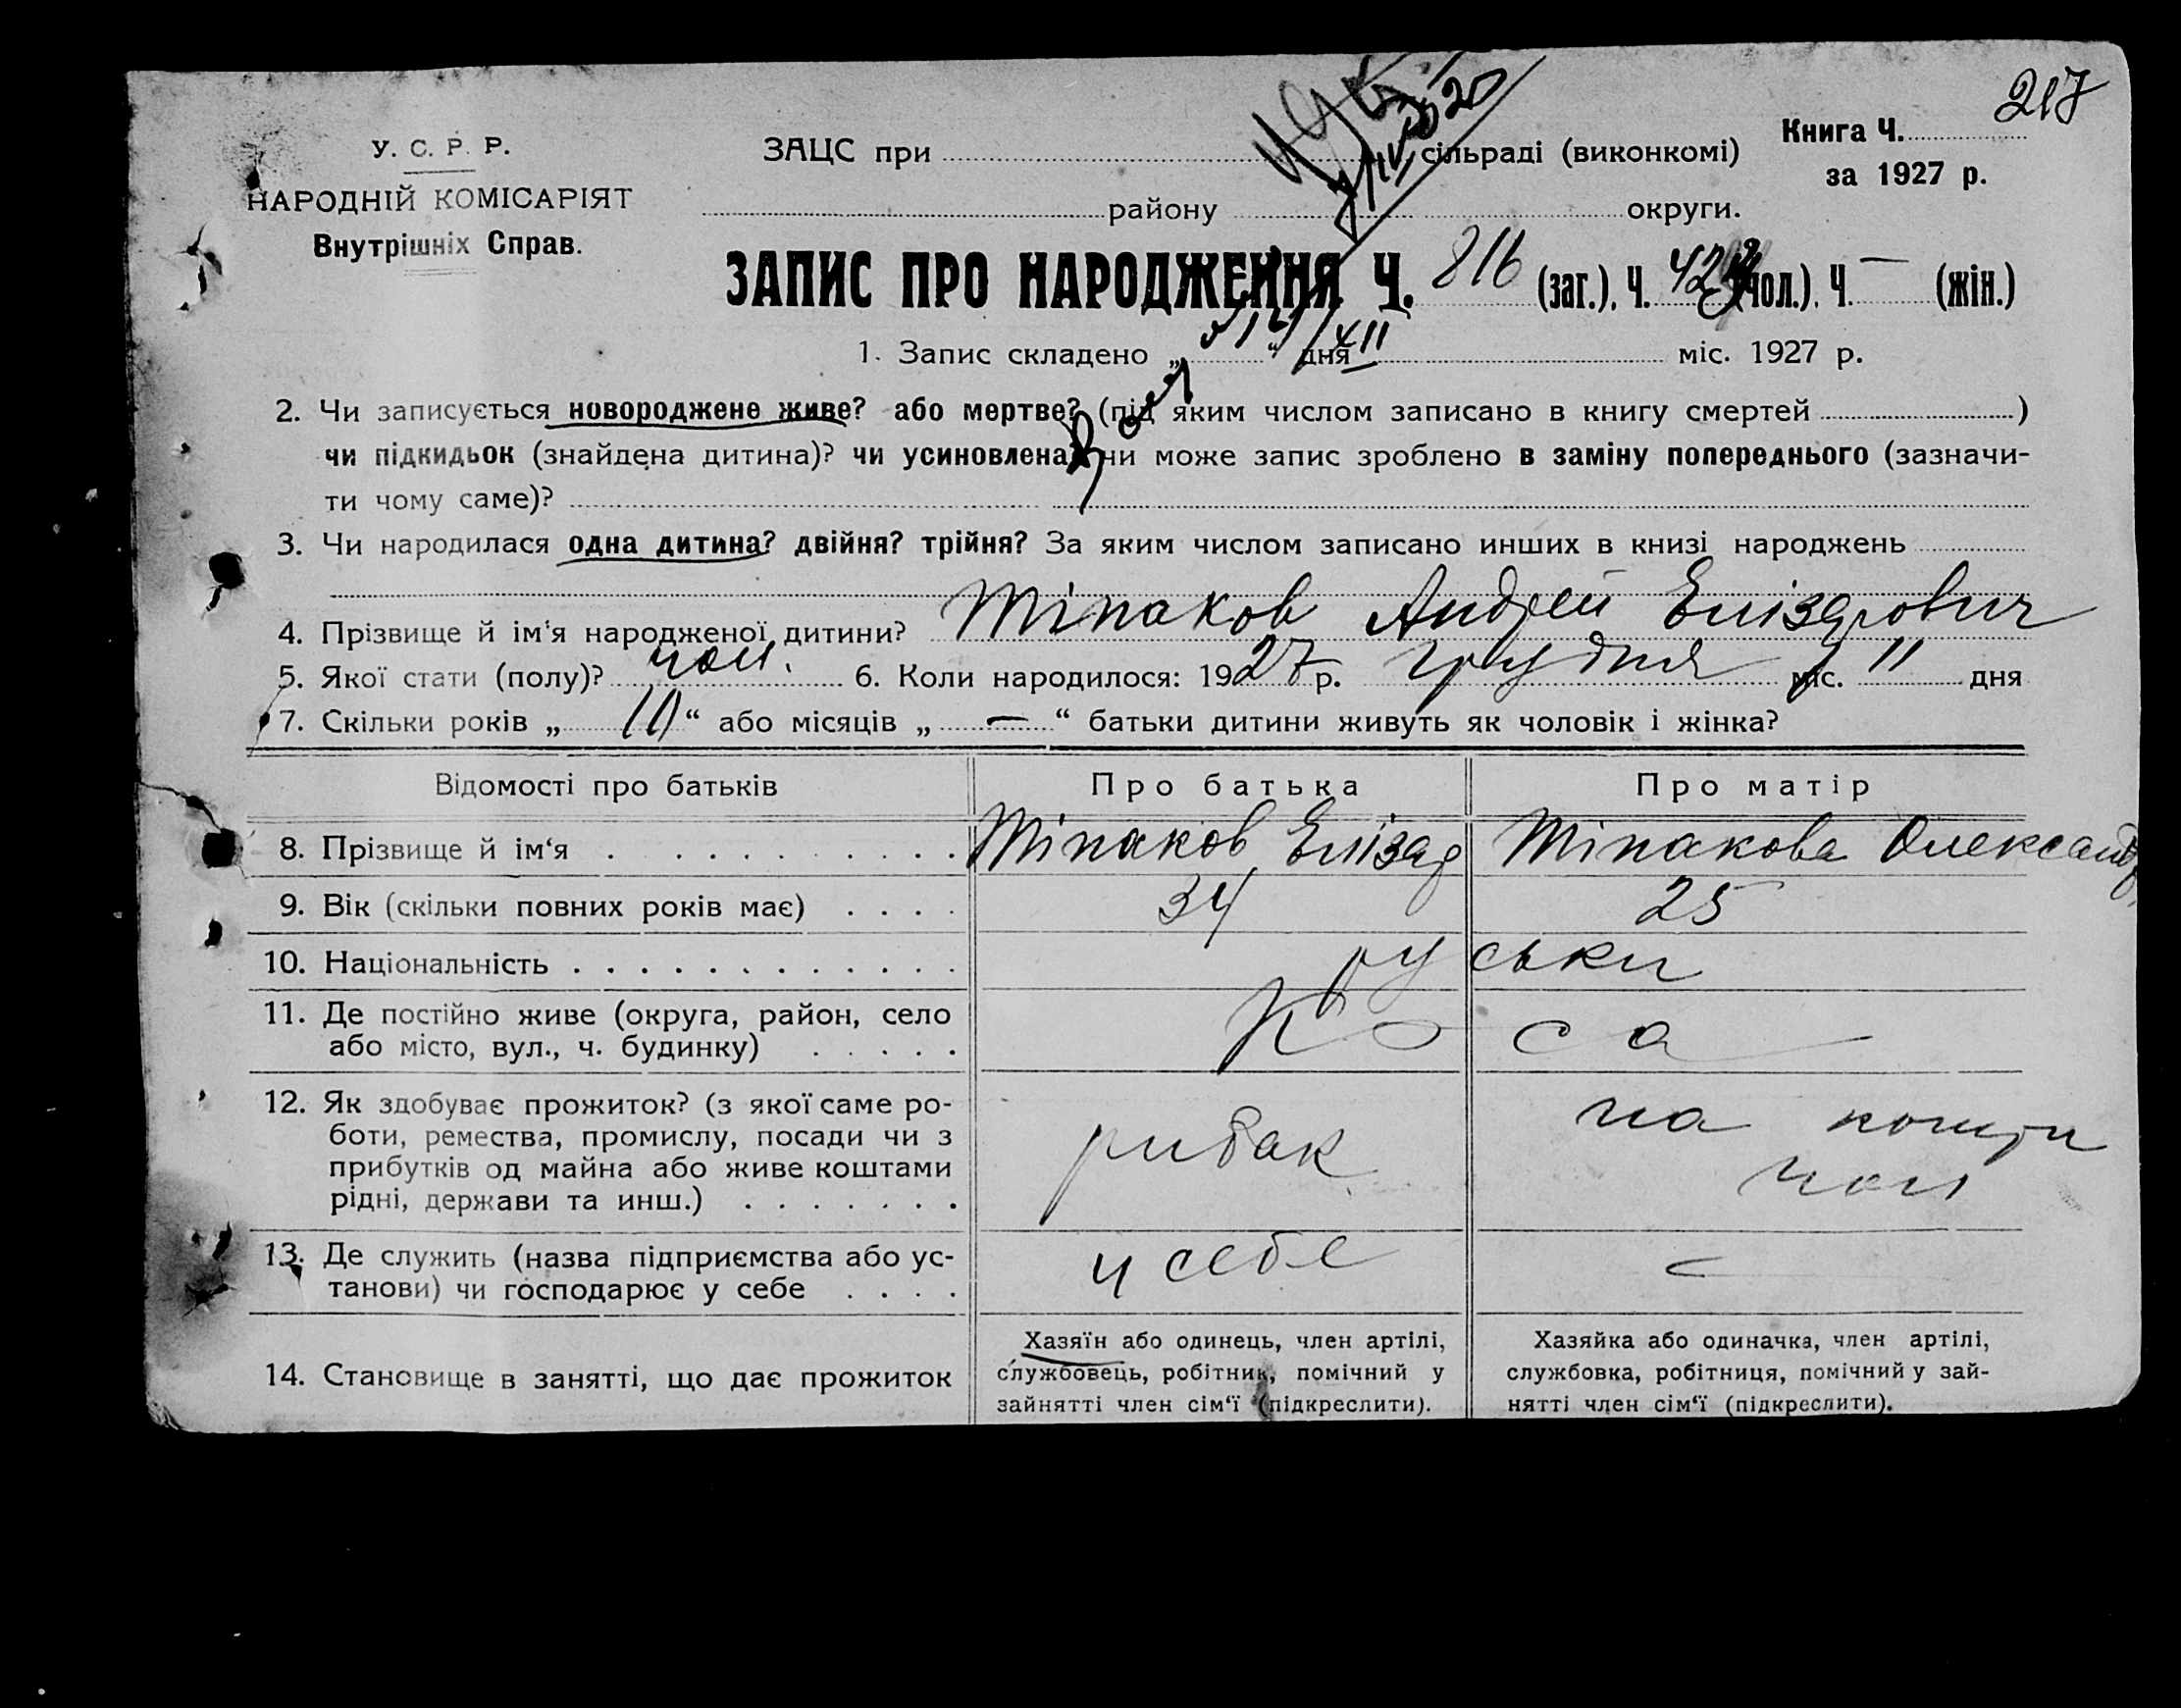 217
У. С. Р. Р.
НАРОДНІЙ КОМІСАРІЯТ
Внутрішніх Справ.
ЗАЦС при сільраді (виконкомі)
району округи.
Книга Ч.
за 1927 р.
ЗАПИС ПРО НАРОДЖЕННЯ Ч. 816 (заг.), Ч. (чол.), Ч. — (жін.)
1. Запис складено „ “ дня XII міс. 1927 р.
2. Чи записується новороджене живе? або мертве? (під яким числом записано в книгу смертей )
чи підкидьок (знайдена дитина)? чи усиновлена? чи може запис зроблено в заміну попереднього (зазначи-
ти чому саме)?
3. Чи народилася одна дитина? двійня? трійня? За яким числом записано инших в книзі народжень
4. Прізвище й ім'я народженої дитини? Тіпаков Андрей Елізарович
5. Якої стати (полу)? чол. 6. Коли народилося: 1927 р. грудня міс. 11 дня
7. Скільки років „ 10 “ або місяців „ — “ батьки дитини живуть як чоловік і жінка?
Відомості про батьків Про батька Про матір
8. Прізвище й ім‘я Тіпаков Елізар Тіпакова Олександр
9. Вік (скільки повних років має) 34 25
10. Національність руськи
11. Де постійно живе (округа, район, село
або місто, вул., ч. будинку) Коса
12. Як здобуває прожиток? (з якої саме ро-
боти, ремества, промислу, посади чи з
прибутків од майна або живе коштами
рідні, держави та инш.) рибак на кошти чол
13. Де служить (назва підприємства або ус-
танови) чи господарює у себе у себе —
14. Становище в занятті, що дає прожиток
Хазяїн або одинець, член артілі,
службовець, робітник, помічний у
зайнятті член сім‘ї (підкреслити).
Хазяйка або одиначка, член артілі,
службовка, робітниця, помічний у зай-
нятті член сім‘ї (підкреслити).